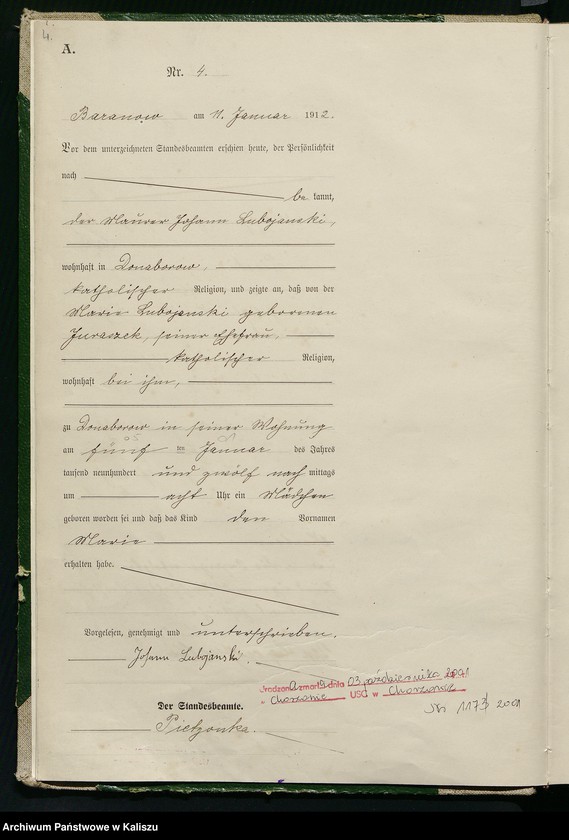 4.
A.
Nr. 4.
Baranow am 11. Januar 1912.
Vor dem unterzeichneten Standesbeamten erschien heute, der Persönlichkeit
nach
be kannt,
der Maurer Johann Lubojanski,
wohnhaft in Donaborow,
katholischer Religion, und zeigte an, daß von der
Marie Lubojanski geborenen
Juraszek, seiner Ehefrau,
katholischer Religion,
wohnhaft bei ihm,
zu Donaborow in seiner Wohnung
am fünf ten Januar des Jahres
tausend neunhundert und zwölf nach mittags
um acht Uhr ein Mädchen
geboren worden sei und daß das Kind den Vornamen
Marie
erhalten habe.
Vorgelesen, genehmigt und unterschrieben.
Johann Lubojanski.
zmarł dnia 03 października 2001
w Chorzowie USC w Chorzowie
Nr 1173 2001
Der Standesbeamte.
Pietzonka.
Archiwum Państwowe w Kaliszu